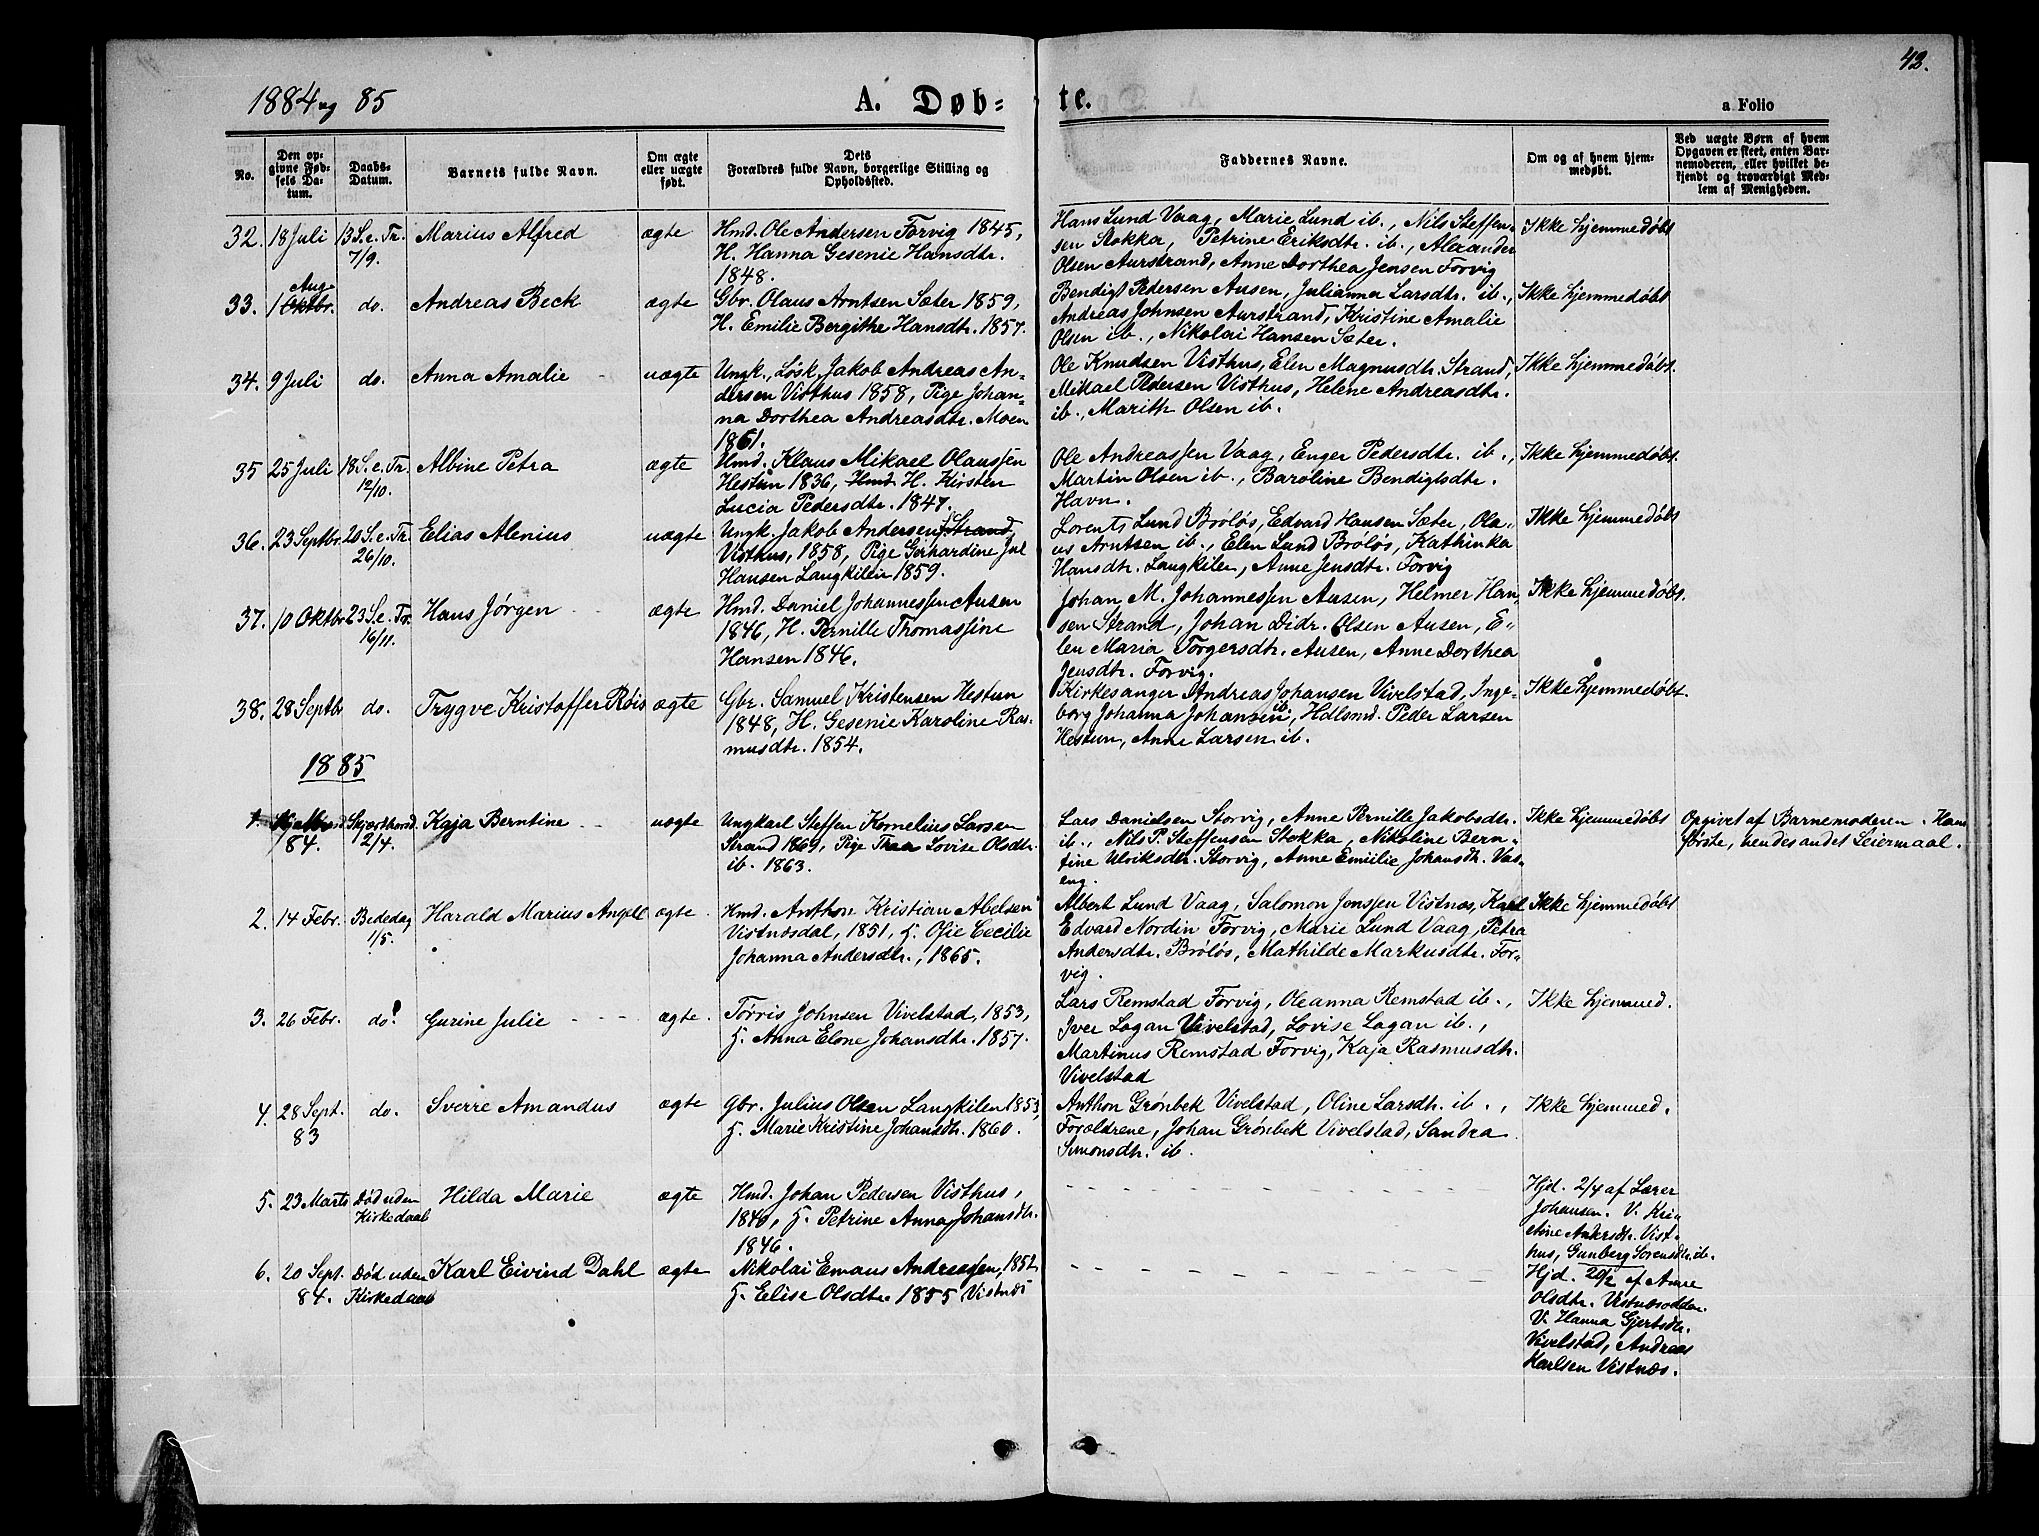 42.
1884 og 85
A. Døb=
te.
a Folio
No.
Den op=
givne Fød=
sels Da=
tum.
Daabs=
Datum.
Barnets fulde Navn.
Om ægte
eller uægte
født.
Dets
Forældres fulde Navn, borgerlige Stilling og
Opholdssted.
Faddernes Navne.
Om og af hvem hjem=
medøbt.
Ved uægte Børn af hvem
Opgaven er skeet, enten Bar=
nemoderen, eller hvilket be=
kjendt og troværdigt Med=
lem af Menigheden.
32. 18 Juli 13 S. e. Tr. 7/9. Marius Alfred ægte
Hmd. Ole Andersen Forvig 1845,
H. Hanna Gesenie Hansdtr.
1848.
Hans Lund Vaag, Marie Lund ib., Nils Steffen=
sen Stokka, Petrine Eriksdtr. ib., Alexander
Olsen Aurstrand, Anne Dorthea Jensen Forvig
Ikke hjemmedøbt
33. 1 Oktbr. Aug. do. Andreas Beck ægte
Gbr. Olaus Arntsen Sæter 1859,
H. Emilie Bergithe Hansdtr. 1857.
Bendigt Pedersen Ausen, Julianna Larsdtr. ib.,
Andreas Johnsen Aurstrand, Kristine Amalie
Olsen ib., Nikolai Hansen Sæter.
Ikke hjemmedøbt
34. 9 Juli do. Anna Amalie uægte
Ungk., Løsk. Jakob Andreas An=
dersen Visthus 1858, Pige Johan=
na Dorthea Andreasdtr. Moen
1861.
Ole Knudsen Visthus, Elen Magnusdtr. Strand,
Mikael Pedersen Visthus, Helene Andreasdtr.
ib., Marith Olsen ib.
Ikke hjemmedøbt.
35 25 Juli 18 S. e. Tr. 12/10. Albine Petra ægte
Hmd. Klaus Mikael Olaussen
Hestun 1836, Hmd H. Kirsten
Lucia Pedersdtr. 1847.
Ole Andreassen Vaag, Enger Pedersdtr. ib.,
Martin Olsen ib., Baroline Bendigtsdtr.
Havn.
Ikke hjemmedøbt.
36. 23 Septbr. 20 S. e. Tr. 26/10. Elias Alenius uægte
Ungk. Jakob Andersen Strand
Visthus, 1858, Pige Gerhardine Jul
Hansen Langkilen 1859.
Lorents Lund Brøløs, Edvard Hansen Sæter, Ola=
us Arntsen ib., Elen Lund Brøløs, Kathinka
Hansdtr. Langkilen, Anne Jensdtr. Forvig
Ikke hjemmedøbt
37. 10 Oktbr 23 S. e. Tr. 16/11. Hans Jørgen ægte
Hmd. Daniel Johannessen Ausen
1846, H. Pernille Thomassine
Hansen 1846.
Johan M. Johannessen Ausen, Helmer Han=
sen Strand, Johan Didr. Olsen Ausen, E=
len Maria Torgersdtr. Ausen, Anne Dorthea
Jensdtr. Forvig.
Ikke hjemmedøbt.
38. 28 Septbr do. Trygve Kristoffer Røis ægte
Gbr. Samuel Kristensen Hestun
1848, H. Gesenie Karoline Ras=
musdtr. 1854.
Kirkesanger Andreas Johansen Vivelstad, Inge=
borg Johanna Johansen ib, Hdlsmd. Peder Larsen
Hestun, Anne Larsen ib.
Ikke hjemmedøbt.
1885
1. 84. Skjærthorsd. 2/4. Kaja Berntine uægte
Ungkarl Steffen Kornelius Larsen
Strand 1869, Pige Thea Lovise Olsdtr.
ib. 1863.
Lars Danielsen Storvig, Anne Pernille Jakobsdtr.
ib., Nils P. Steffensen Stokka, Nikoline Bern=
tine Ulriksdtr. Storvig, Anne Emilie Johansdtr. Vas=
eng.
Ikke hjemmedøbt
Opgivet af Barnemoderen. Hans
første, hendes andet Leiermaal.
2. 14 Febr. Bededag 1/5. Harald Marius Angell ægte.
Hmd. Anthon Kristian Abelsen
Vistnæsdal, 1851, H. Ofie Cecilie
Johanna Andersdtr., 1865.
Albert Lund Vaag, Salomon Jonssen Vistnæs, Karl
Edvard Nordin Forvig, Marie Lund Vaag, Petra
Andersdtr. Brøløs, Mathilde Markusdtr. For=
vig.
Ikke hjemmedøbt
3. 26 Febr. do. Gurine Julie ægte.
Tørris Johnsen Vivelstad, 1853,
H. Anna Elone Johansdtr. 1857.
Lars Remstad Forvig, Oleanna Remstad ib.,
Iver Lagan Vivelstad, Lovise Lagan ib.,
Martinus Remstad Forvig, Kaja Rasmusdtr.
Vivelstad
Ikke hjemmed.
4. 28 Sept. 83 do. Sverre Amandus ægte
Gbr. Julius Olsen Langkilen 1853,
H. Marie Kristine Johansdtr. 1860.
Anthon Grønbek Vivelstad, Oline Larsdtr. ib.,
Forældrene, Johan Grønbek Vivelstad, Sandra
Simonsdtr. ib.
Ikke hjemmed.
5. 23 Marts Død uden Kirkedaab Hilda Marie ægte
Hmd. Johan Pedersen Visthus,
1840, H. Petrine Anna Johansdtr.
1846.
Hjd. 2/4 af Lærer
Johansen. V. Kri=
stine Andersdtr. Vist=
hus, Gunberg Sørensdtr. ib.
6. 20 Sept. 84. Død uden Kirkedaab Karl Eivind Dahl ægte
Nikolai Emaus Andreassen, 1852
H. Elise Olsdtr. 1855 Vistnæs
Hjd. 20/2 af Anne
Olsdtr. Vistnæsodden.
V. Hanna Gjertsdtr.
Vivelstad, Andreas
Karlsen Vistnæs.